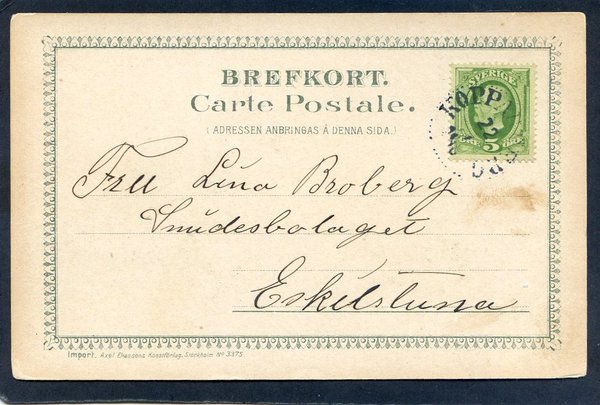 BREFKORT.
Carte Postale.
(ADRESSEN ANBRINGAS Å DENNA SIDA.)
SVERIGE
5
ÖRE
KOPPA
22
Fru Lina Broberg
Smidesbolaget
Eskilstuna
Import. Axel Eliassons Konstförlag, Stockholm Nº 3375